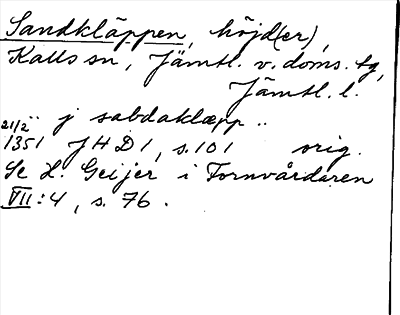 Sandkläppen, höjd(er),
Kalls sn, Jämtl. v. doms. tg,
Jämtl. l.
21/2 .. j sabdaklæpp ..
1351 JHD 1, s. 101 orig.
Se H. Geijer i Fornvårdaren
VII:4, s. 76.